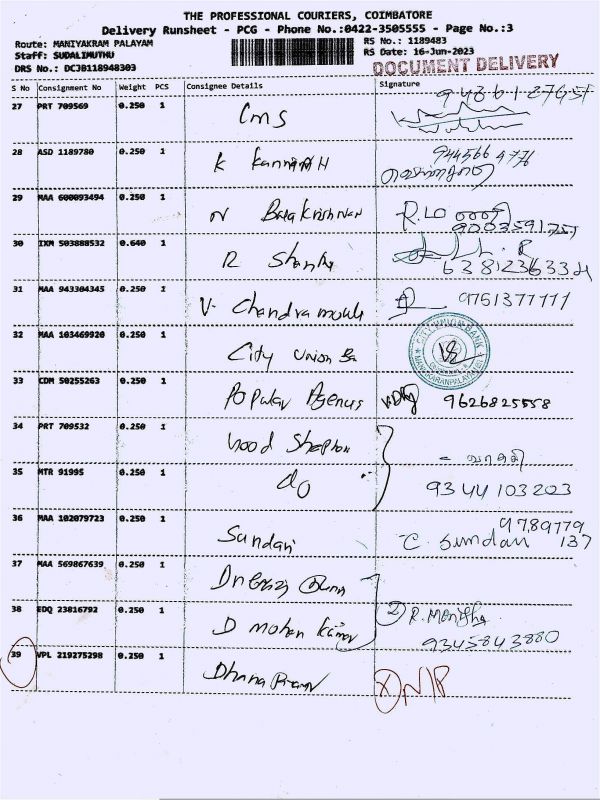 THE PROFESSIONAL COURIERS, COIMBATORE
Delivery Runsheet - PCG - Phone No.:0422-3505555 - Page No.:3
Route: MANIYAKRAM PALAYAM RS No.: 1189483
Staff: SUDALIMUTHU RS Date: 16-Jun-2023
DRS No.: DCJB118948303 DOCUMENT DELIVERY
S No Consignment No Weight PCS Consignee Details Signature
27 PRT 709569 0.250 1 CMS
28 ASD 1189780 0.250 1 K
29 MAA 600093494 0.250 1 N Balakrishnan
9003591751
30 IXM 503888532 0.640 1 R
31 MAA 943304345 0.250 1 V. Chandramouli 9751377777
32 MAA 103469920 0.250 1 City Union Ba CITY UNION BANK
33 CDM 50255263 0.250 1 Popular Agencies 9626825558
34 PRT 709532 0.250 1
35 MTR 91995 0.250 1 do 9344103203
36 MAA 102079723 0.250 1 Sundari 9789779
C. Sundari 137
37 MAA 569867639 0.250 1
38 EDQ 23816792 0.250 1 D mohan Kumar 2 R. Manisha
9345843880
39 VPL 219275298 0.250 1 N/P